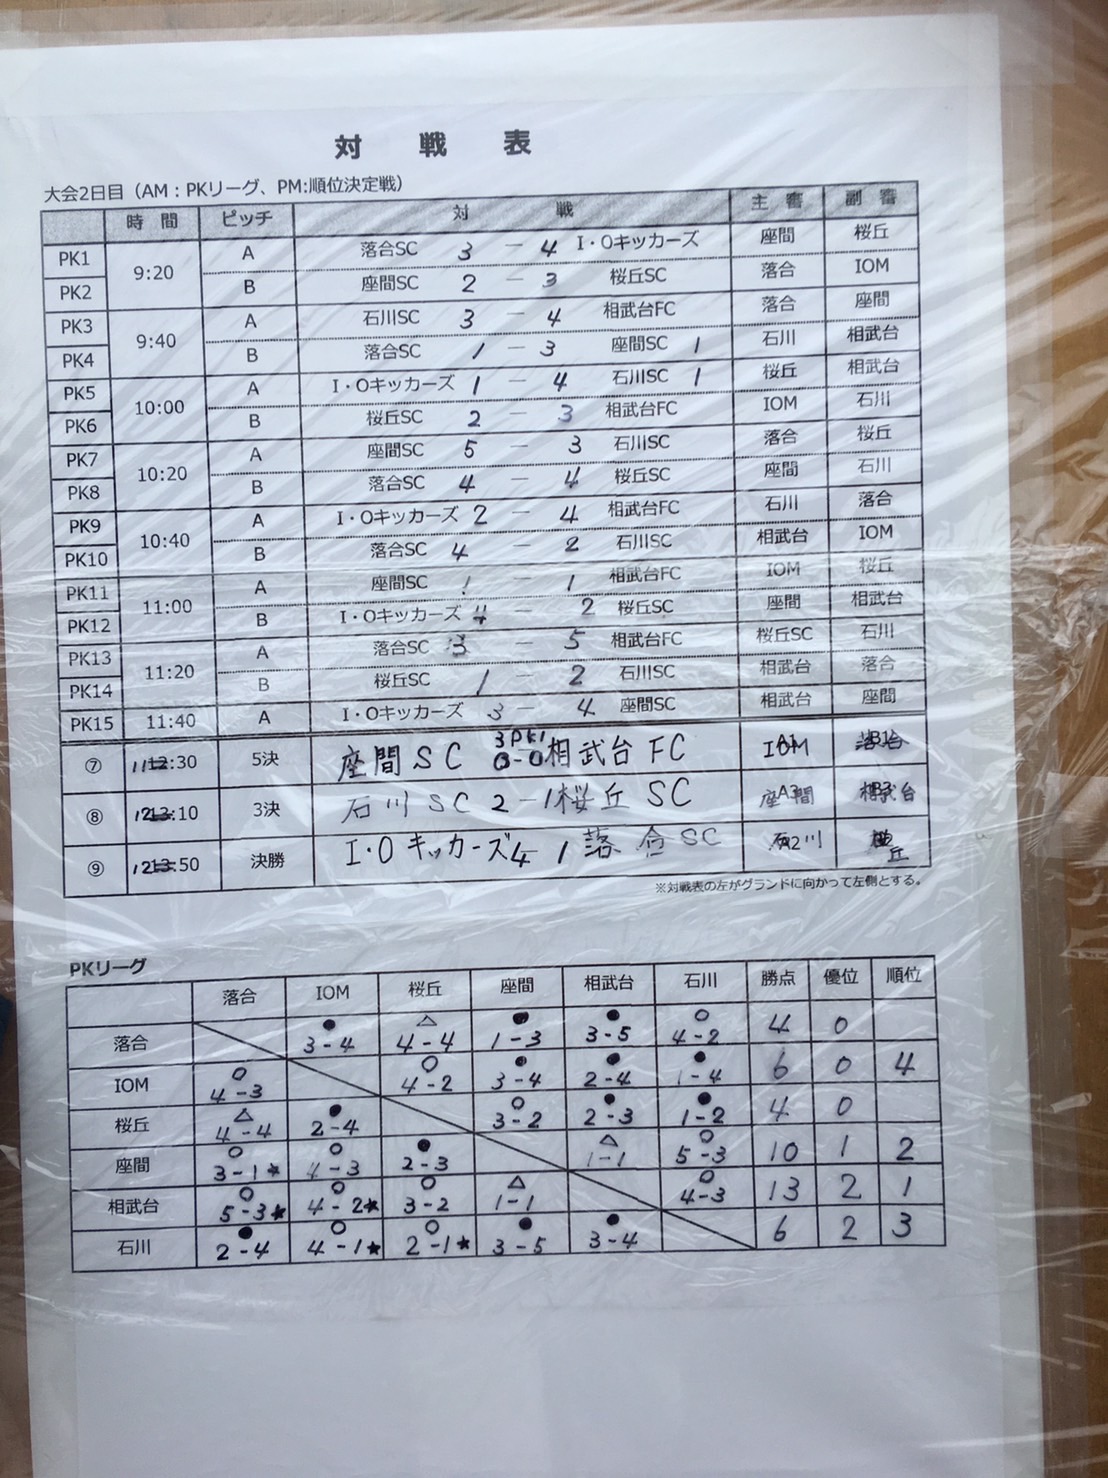 対 戦 表
大会2日目（AM：PKリーグ、PM:順位決定戦）
時 間 ピッチ 対 戦 主 審 副 審
PK1 9:20 A 落合SC 3 － 4 I・Oキッカーズ 座間 桜丘
PK2 B 座間SC 2 － 3 桜丘SC 落合 IOM
PK3 9:40 A 石川SC 3 － 4 相武台FC 落合 座間
PK4 B 落合SC 1 － 3 座間SC 1 石川 相武台
PK5 10:00 A I・Oキッカーズ 1 － 4 石川SC 1 桜丘 相武台
PK6 B 桜丘SC 2 － 3 相武台FC IOM 石川
PK7 10:20 A 座間SC 5 3 石川SC 落合 桜丘
PK8 B 落合SC 4 － 4 桜丘SC 座間 石川
PK9 10:40 A I・Oキッカーズ 2 － 4 相武台FC 石川 落合
PK10 B 落合SC 4 － 2 石川SC 相武台 IOM
PK11 11:00 A 座間SC 1 1 相武台FC IOM 桜丘
PK12 B I・Oキッカーズ 4 － 2 桜丘SC 座間 相武台
PK13 11:20 A 落合SC 3 － 5 相武台FC 桜丘SC 石川
PK14 B 桜丘SC 1 － 2 石川SC 相武台 落合
PK15 11:40 A I・Oキッカーズ 3 － 4 座間SC 相武台 座間
⑦ 11:30 5決 座間SC 3PK1 0-0 相武台FC IOM
⑧ 12:10 3決 石川SC 2-1 桜丘SC 座間 相武台
⑨ 12:50 決勝 I・Oキッカーズ 4 1 落合SC 石川 桜丘
※対戦表の左がグランドに向かって左側とする。
PKリーグ
落合 IOM 桜丘 座間 相武台 石川 勝点 優位 順位
落合 ●3-4 △4-4 ●1-3 ●3-5 ○4-2 4 0
IOM ○4-3 ○4-2 ●3-4 ●2-4 ●1-4 6 0 4
桜丘 △4-4 ●2-4 ○3-2 ●2-3 ●1-2 4 0
座間 ○3-1★ ○4-3 ●2-3 △1-1 ○5-3 10 1 2
相武台 ○5-3★ ○4-2★ ○3-2 △1-1 ○4-3 13 2 1
石川 ●2-4 ○4-1★ ○2-1★ ●3-5 ●3-4 6 2 3